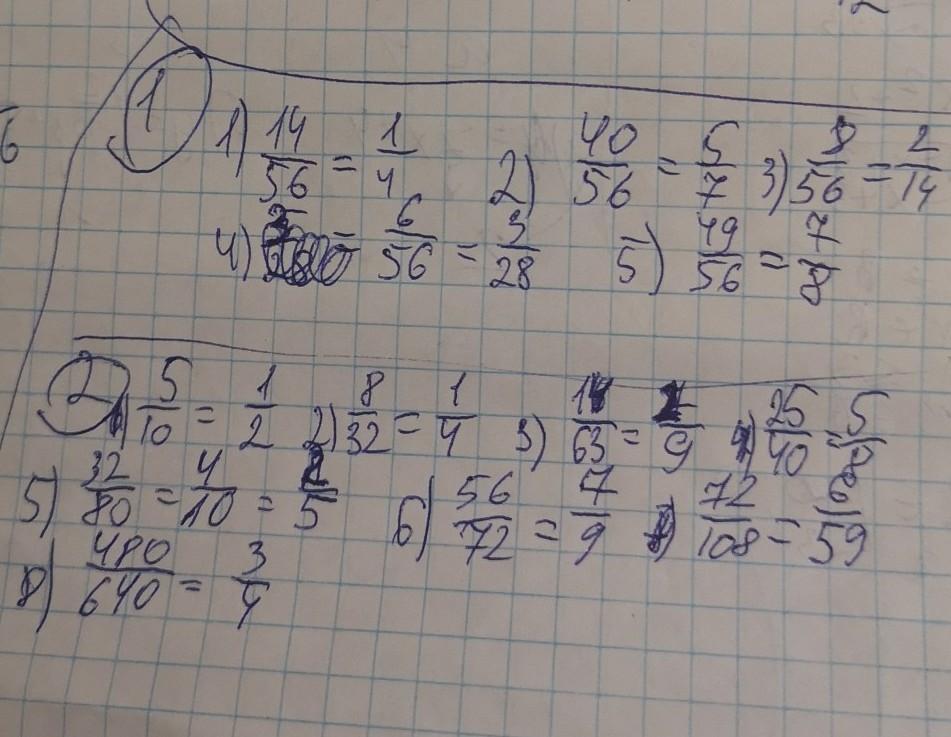 1
1) 14/56 = 1/4 2) 40/56 = 5/7 3) 8/56 = 2/14
4) = 6/56 = 3/28 5) 49/56 = 7/8
2 1) 5/10 = 1/2 2) 8/32 = 1/4 3) 14/63 = 2/9 4) 25/40 = 5/8
5) 32/80 = 4/10 = 2/5 6) 56/72 = 7/9 72/108 = 6/59
8) 480/640 = 3/4